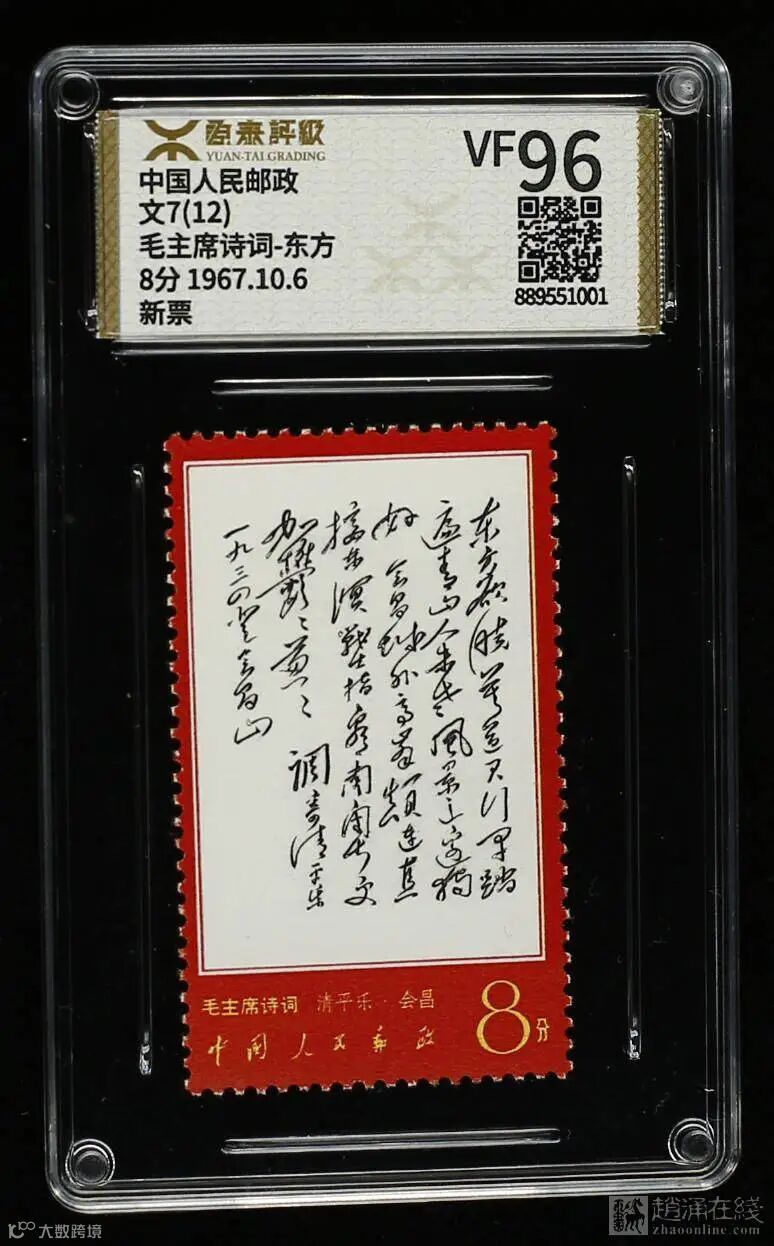 源泰評級
YUAN-TAI GRADING
中国人民邮政
文7(12)
毛主席诗词-东方
8分 1967.10.6
新票
VF96
889551001
东方欲晓莫道君行早踏
遍青山人未老风景这边独
好 会昌城外高峰颠连直
接东溟战士指看南粤更
加鬱々葱々 调寄清平乐
一九三四登会昌山
毛主席诗词 清平乐·会昌
中国人民邮政
8分
大数跨境
趙涌在綫
zhaoonline.com